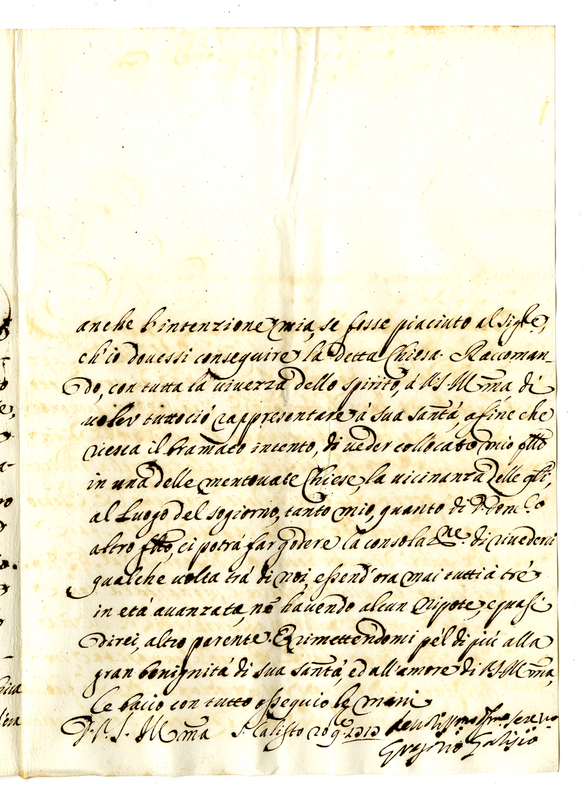 anche l'intenzione mia, se fosse piaciuto al Sig.re,
ch'io douessi conseguire la detta Chiesa. Raccoman-
do, con tutta la viuezza dello spirito, à V.S. Ill.ma di
uoler tuttociò rappresentare à sua santà, afine che
riesca il bramato intento, di ueder collocato mio fllo
in una delle mentouate Chiese, la uicinanza delle qli,
al Luogo del sogiorno, tanto mio, quanto di
altro fllo, ci potrà far godere la consolane. di riuederci
qualche uolta trà di noi, essend'ora mai tutti à trè
in età auanzata, nõ hauendo alcun Nipote, e quasi
direi, altro parente. E rimettendomi pel di più alla
gran benignità di sua santà, ed all'amore di V.S. Ill.ma,
le bacio con tutto ossequio le mani
D. V. S. Ill.ma